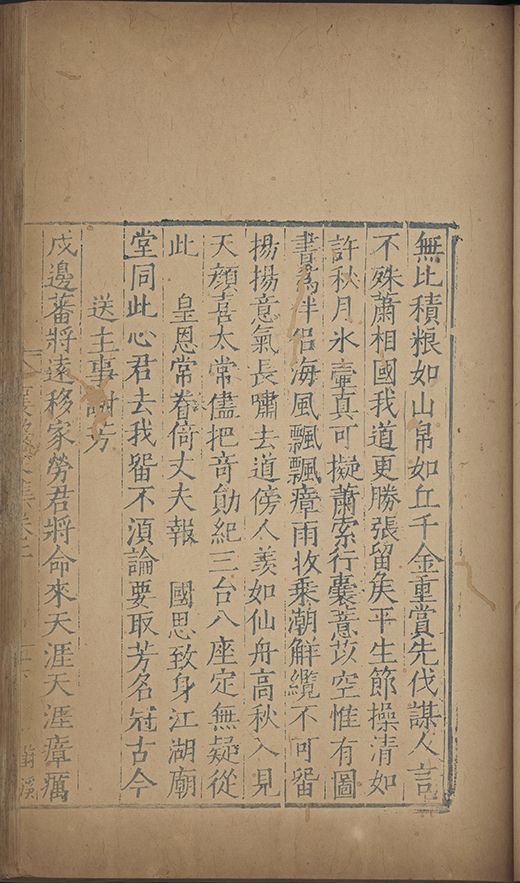 無比積粮如山帛如丘千金重賞先伐謀人言
不殊蕭相國我道更勝張留矦平生節操清如
許秋月氷壷真可擬蕭索行囊薏苡空惟有圖
書為伴侣海風飄飄瘴雨收乘潮觧纜不可畱
揚揚意氣長嘯去道傍人羡如仙舟高秋入見
天顔喜太常儘把竒勛紀三台八座定無疑從
此 皇恩常眷倚丈夫報 國思致身江湖廟
堂同此心君去我畱不湏論要取芳名冠古今
送主事謝芳
戍邊蕃將遠移家勞君將命來天涯天涯瘴癘